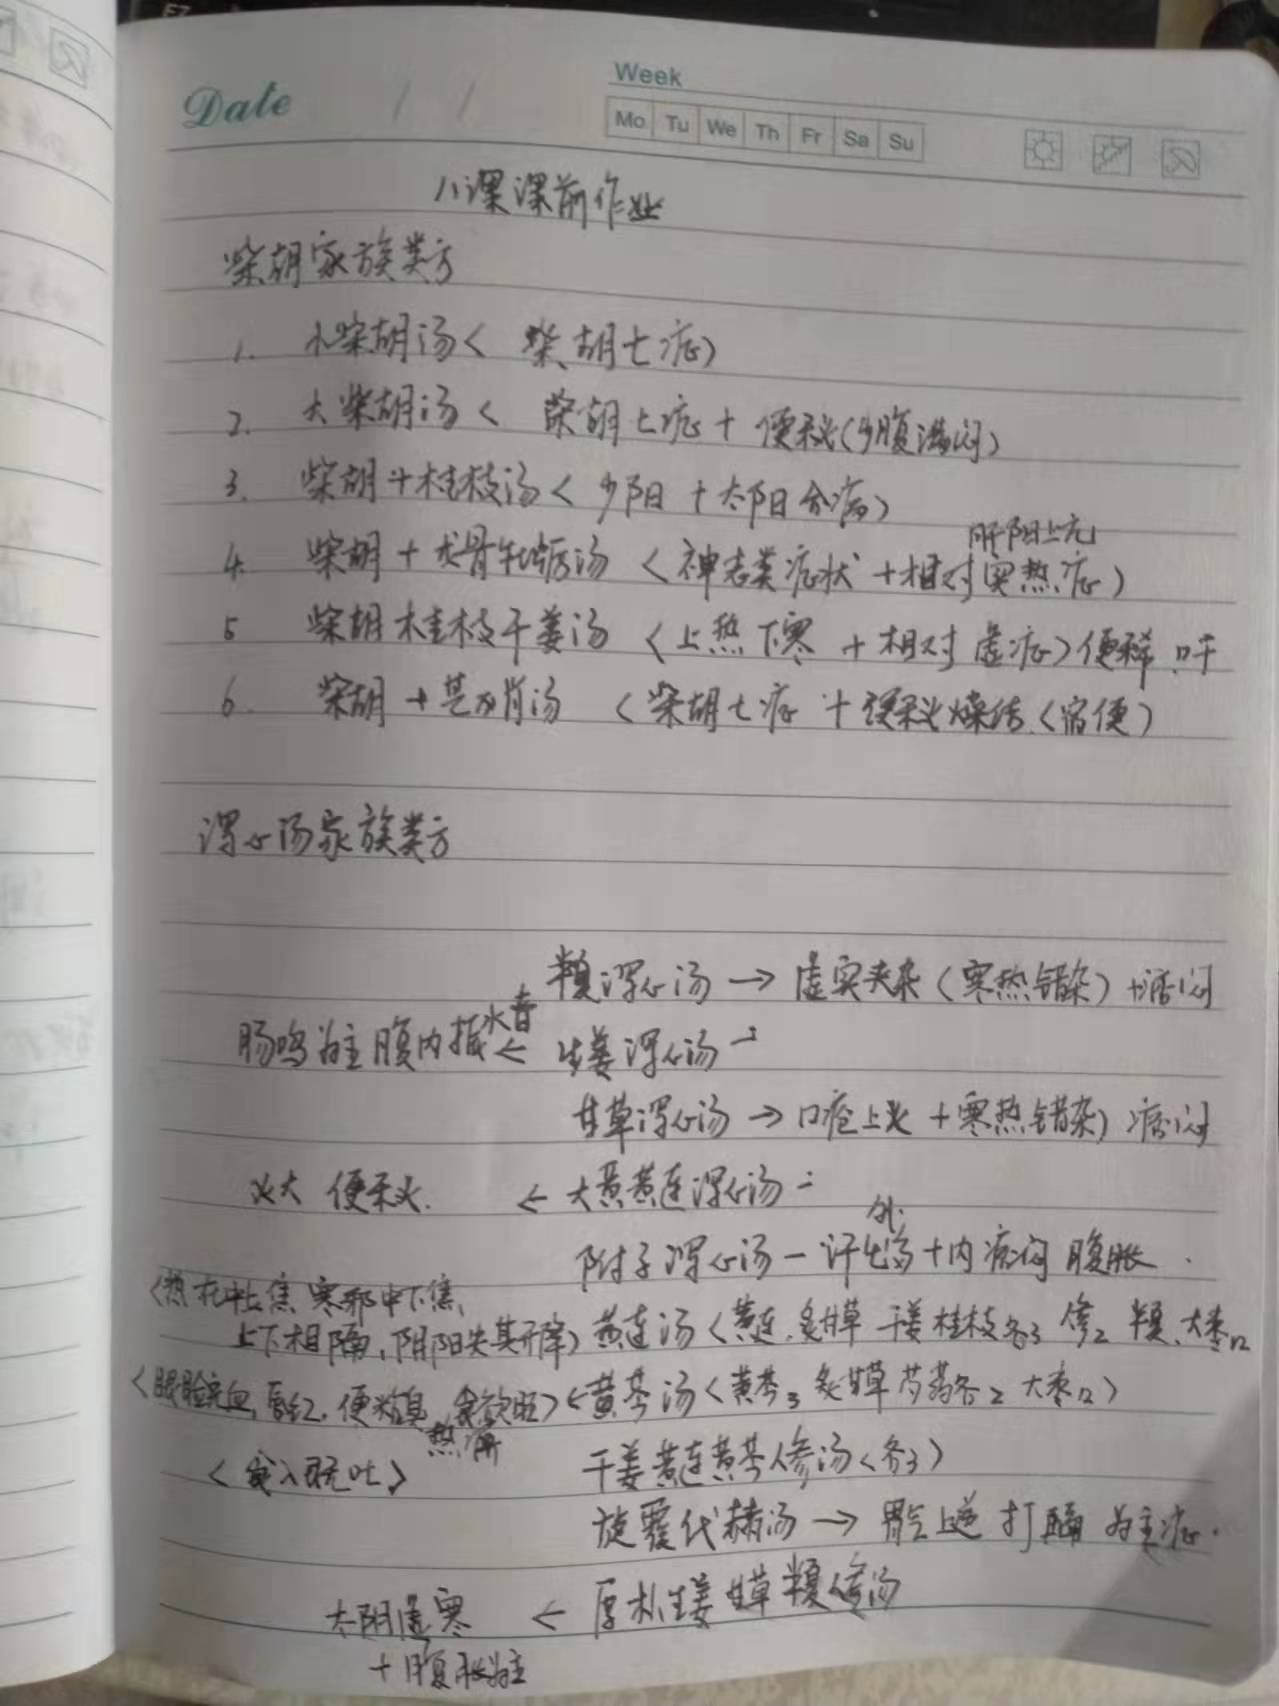 Date / /
Week
Mo Tu We Th Fr Sa Su
八课课前作业
柴胡家族类方
1. 小柴胡汤〈柴胡七症〉
2. 大柴胡汤〈柴胡七症+便秘(少腹满闷)
3. 柴胡+桂枝汤〈少阳+太阳合病〉
肝阳上亢
4. 柴胡+龙骨牡蛎汤〈神志类症状+相对实热症〉
5 柴胡桂枝干姜汤〈上热下寒+相对虚症〉便稀 口干
6. 柴胡+芒硝汤〈柴胡七症+便秘燥结(宿便)
泻心汤家族类方
半夏泻心汤→虚实夹杂(寒热错杂)+痞闷
肠鸣为主 腹内振水音 ← 生姜泻心汤
甘草泻心汤→口疮上火+寒热错杂)痞闷
火大 便秘. ← 大黄黄连泻心汤
附子泻心汤—外汗出+内痞闷 腹胀.
〈热在中上焦 寒邪中下焦,
上下相隔,阴阳失其升降〉黄连汤〈黄连.炙甘草 干姜 桂枝各3 参2 半夏.大枣12
〈眼睑充血,唇红,便粘臭,食欲旺〉←黄芩汤〈黄芩3 炙甘草 芍药各2 大枣12〉
热滞
〈食入既吐〉 干姜黄连黄芩人参汤〈各3〉
旋覆代赭汤→胃气上逆 打嗝 为主症.
太阴虚寒 ← 厚朴生姜甘草半夏人参汤
+腹胀为主